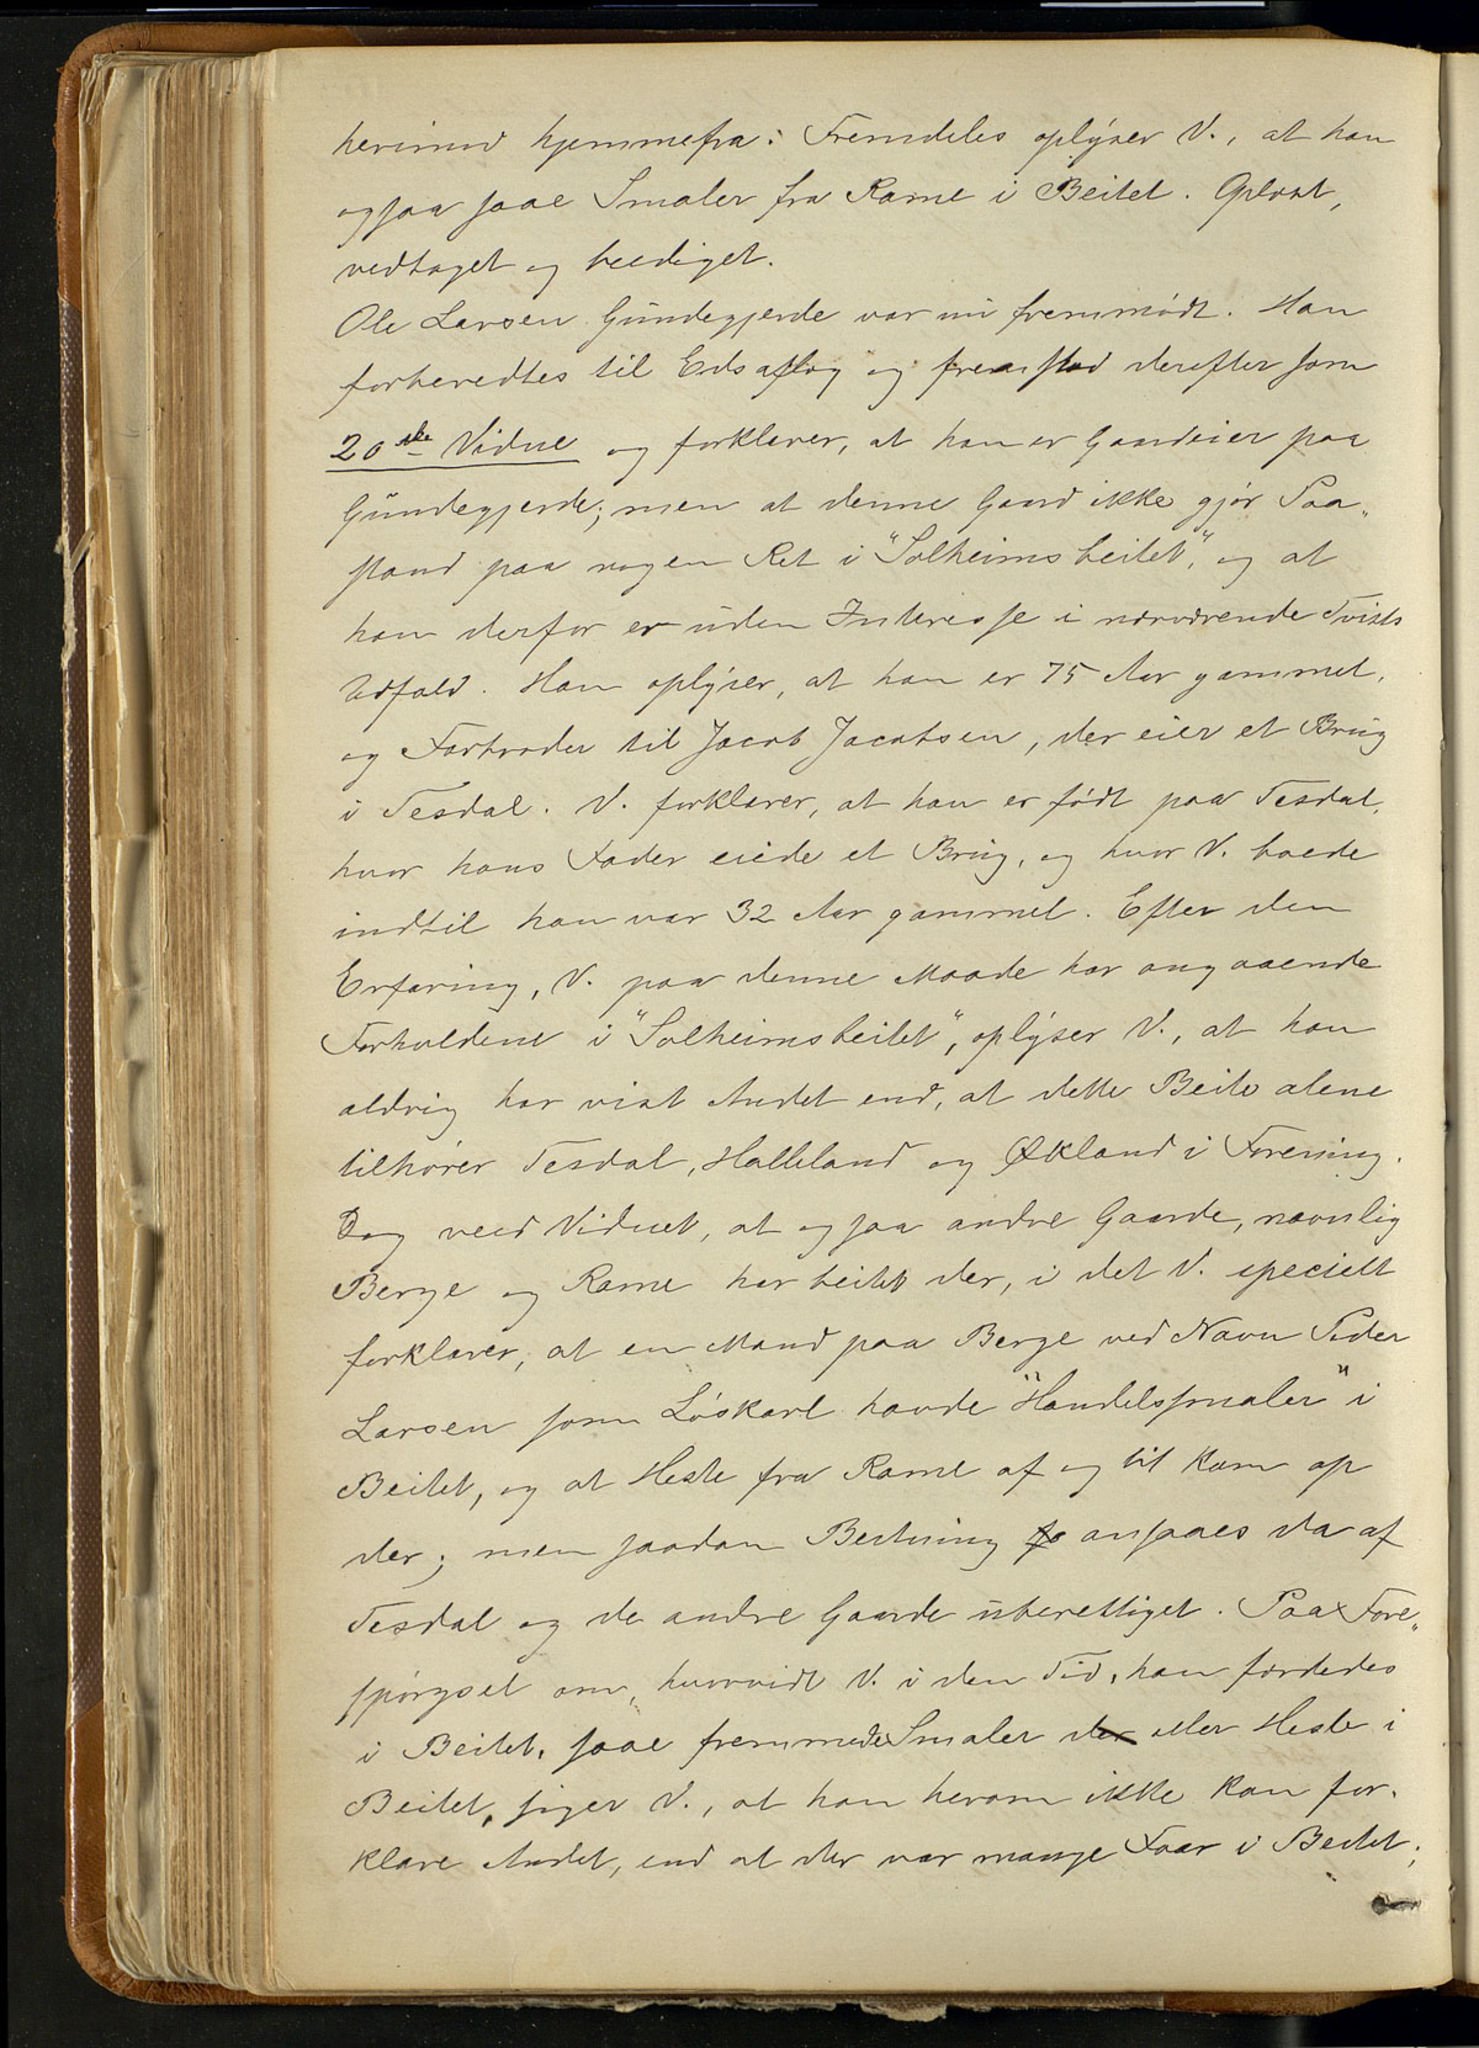 herimod hjemmefra. Fremdeles oplyser V., at han
ogsaa saae Smaler fra Rame i Beitet. Oplæst,
vedtaget og beediget.
Ole Larsen Gundegjerde var nu fremmødt. Han
forberedtes til Edsaflæg og fremstod derefter som
20de Vidne og forklarer, at han er Gaardeier paa
Gundegjerde; men at denne Gaard ikke gjør Paa„
stand paa nogen Ret i "Solheimsbeitet", og at
han derfor er uden Interesse i nærværende Tvists
Udfald. Han oplyser, at han er 75 Aar gammel,
og Farbroder til Jacob Jacobsen, der eier et Brug
i Tesdal. V. forklarer, at han er født paa Tesdal,
hvor hans Fader eiede et Brug, og hvor V. boede
indtil han var 32 Aar gammel. Efter den
Erfaring, V. paa denne Maade har angaaende
Forholdene i "Solheimsbeitet", oplyser V., at han
aldrig har vist Andet end, at dette Beite alene
tilhører Tesdal, Halleland og Økland i Forening.
Dog veed Vidnet, at ogsaa andre Gaarde, navnlig
Berge og Rame har beitet der, i det V. specielt
forklarer, at en Mand paa Berge ved Navn Peder
Larsen som Løskarl havde "Handelssmaler" i
Beitet, og at Heste fra Rame af og til kom op
der; men saadan Beitning fo ansaaes da af
Tesdal og de andre Gaarde uberettiget. Paa Fore„
spørgsel om, hvorvidt V. i den Tid, han færdedes
i Beitet, saae fremmede Smaler der eller Heste i
Beitet, siger V., at han herom ikke kan for„
klare Andet, end at der var mange Faar i Beitet;